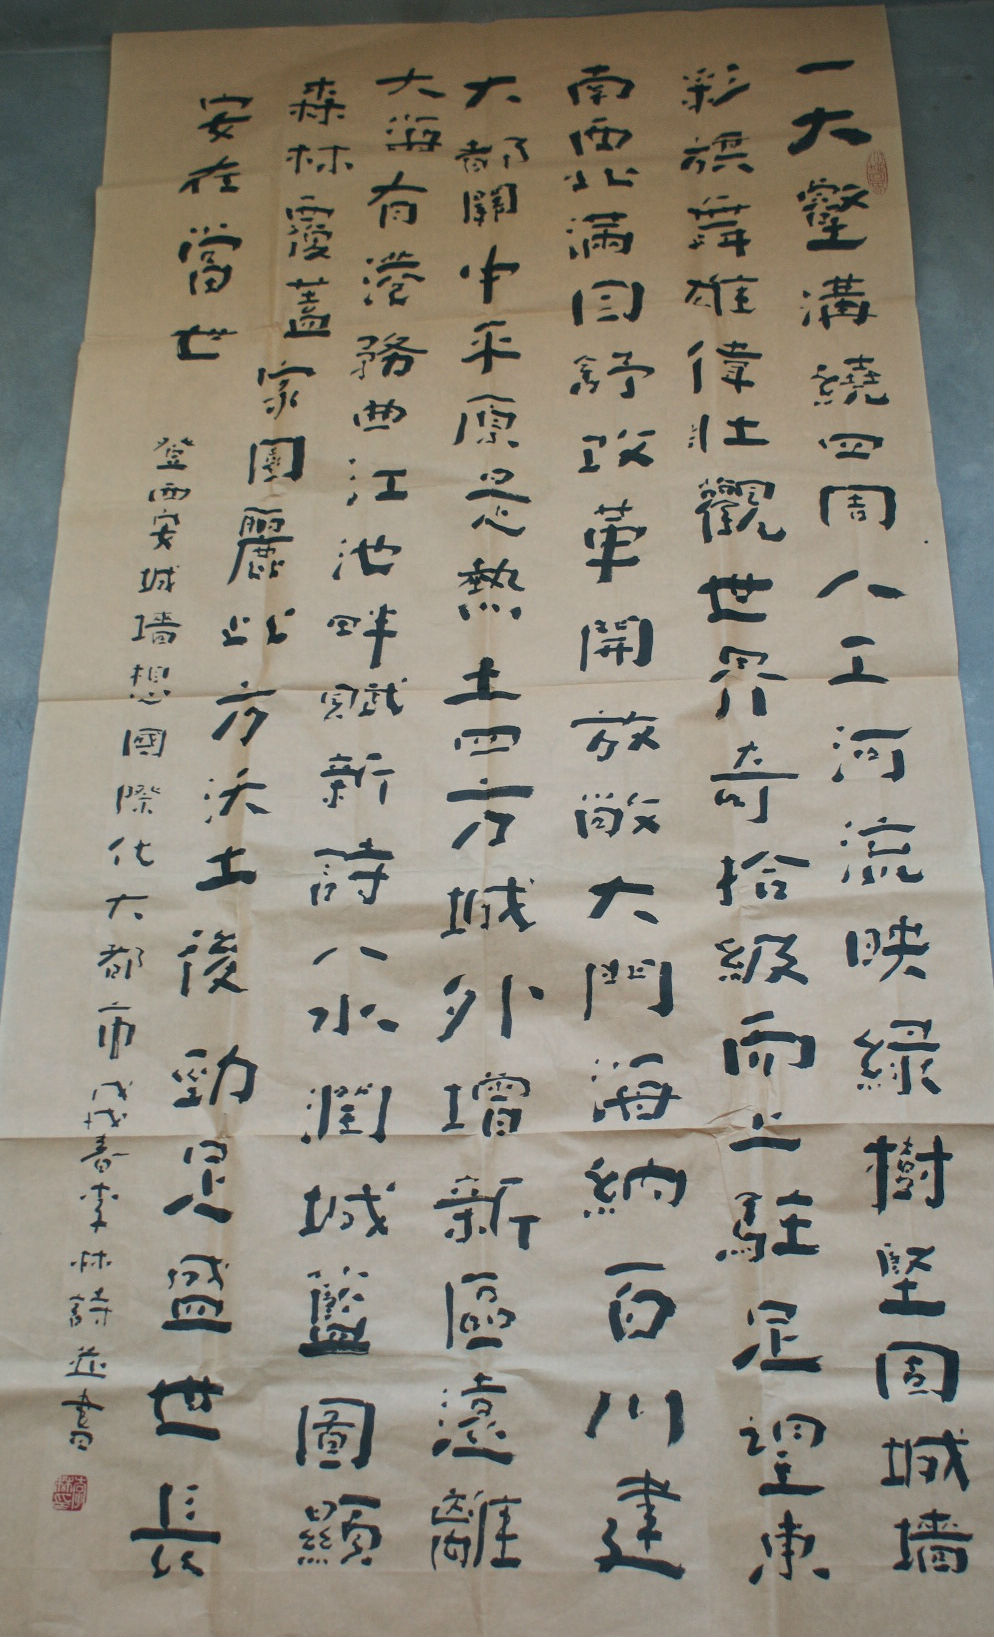 一大壑溝繞四周人工河流映綠樹堅固城墻
彩旗舞雄偉壯觀世界奇拾級而上駐足望東
南西北滿目舒改革開放敞大門海納百川建
大都關中平原是熱土四方城外增新區遠離
大海有港務曲江池畔賦新詩八水潤城籃圖顯
森林覆蓋家園麗此方沃土後勁足盛世長
安在當世
登西安城墻想國際化大都市戊戌春李林詩並書